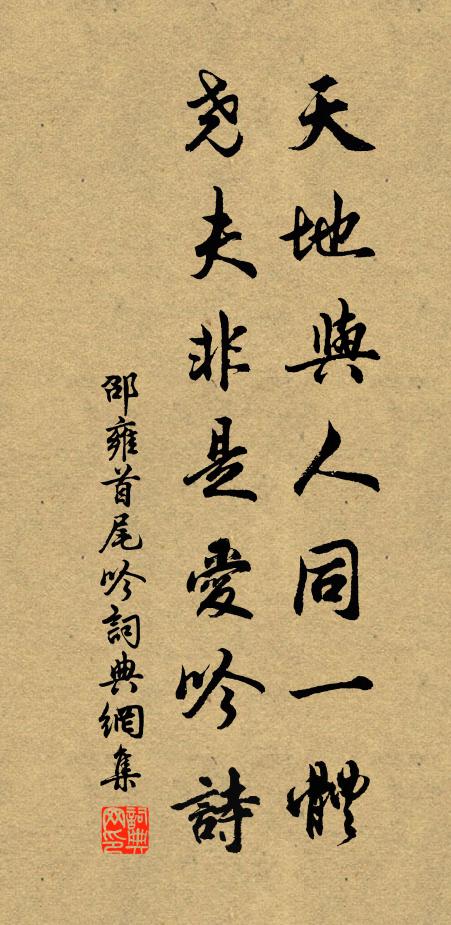 天地與人同一體
堯夫非是愛吟詩
邵雍首尾吟詞典網集
詞典網印